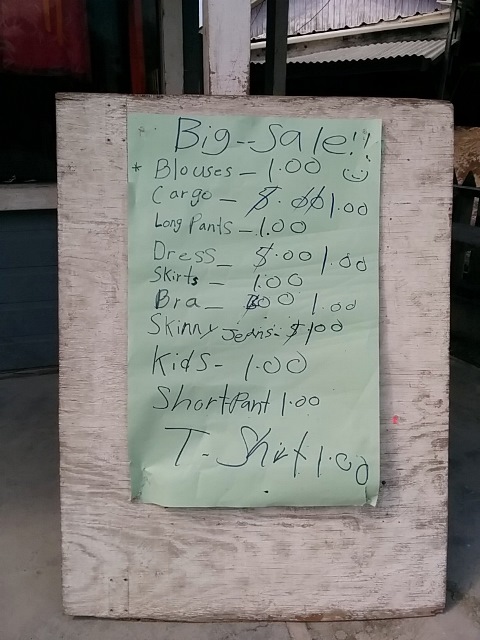 Big--Sale!!
* Blouses - 1.00
Cargo - 1.00
Long Pants - 1.00
Dress - 5.00 1.00
Skirts - 1.00
Bra - 1.00
Skinny Jeans - 1.00
Kids - 1.00
Short Pant 1.00
T-Shirt 1.00